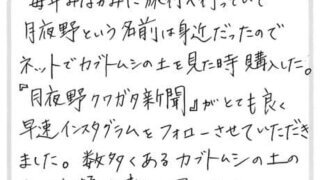 毎年みなかみに旅行へ行っていて
月夜野という名前は身近だったので
ネットでカブトムシの土を見た時購入した。
『月夜野クワガタ新聞』がとても良く
早速インスタグラムをフォローさせていただき
ました。数多くあるカブトムシの土の